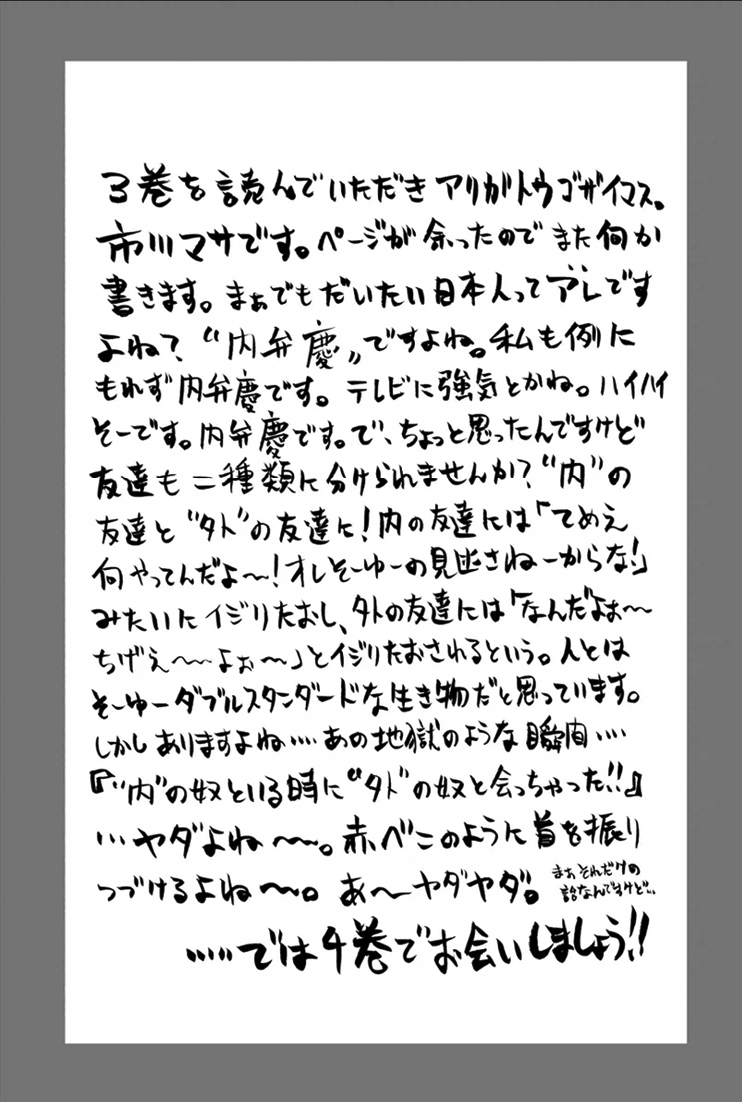 3巻を読んでいただきアリガトウゴザイマス。
市川マサです。ページが余ったのでまた何か
書きます。まぁでもだいたい日本人ってアレです
よね?“内弁慶”ですよね。私も例に
もれず内弁慶です。テレビに強気とかね。ハイハイ
そーです。内弁慶です。で、ちょっと思ったんですけど
友達も二種類に分けられませんか?“内”の
友達と“外”の友達に!内の友達には「てめえ
何やってんだよ〜!オレそーゆーの見逃さねーからな!」
みたいにイジりたおし、外の友達には「なんだよぉ〜
ちげぇ〜〜よぉ〜」とイジりたおされるという。人とは
そーゆーダブルスタンダードな生き物だと思っています。
しかしありますよね‥‥あの地獄のような瞬間‥‥
『“内”の奴といる時に“外”の奴と会っちゃった!!』
…ヤダよね〜〜。赤べこのように首を振り
つづけるよね〜〜。あ〜ヤダヤダ。
まぁそれだけの
話なんですけど…
……では4巻でお会いしましょう!!